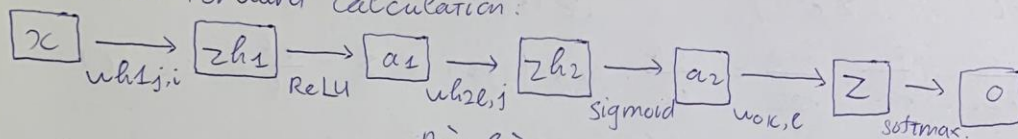 Forward calculation:
x zh1 a1 zh2 a2 z o
wh1j,i ReLU wh2l,j sigmoid wok,l softmax